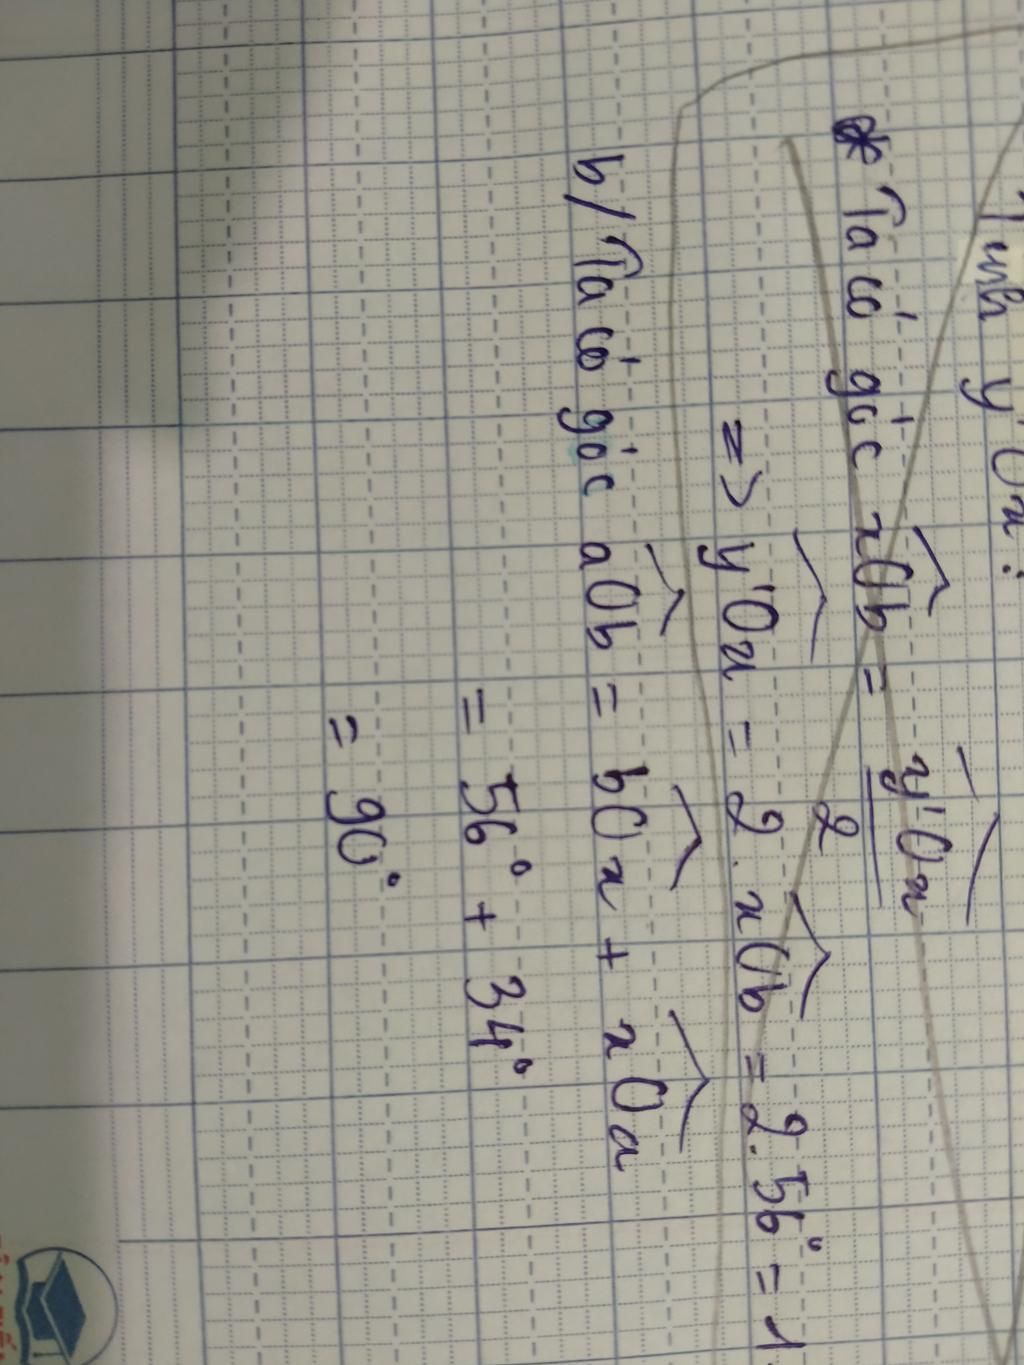 Tính y'Ox:
* Ta có góc xOb = y'Ox / 2
=> y'Ox = 2. xOb = 2. 56° = 1
b/ Ta có góc aOb = bOx + xOa
= 56° + 34°
= 90°